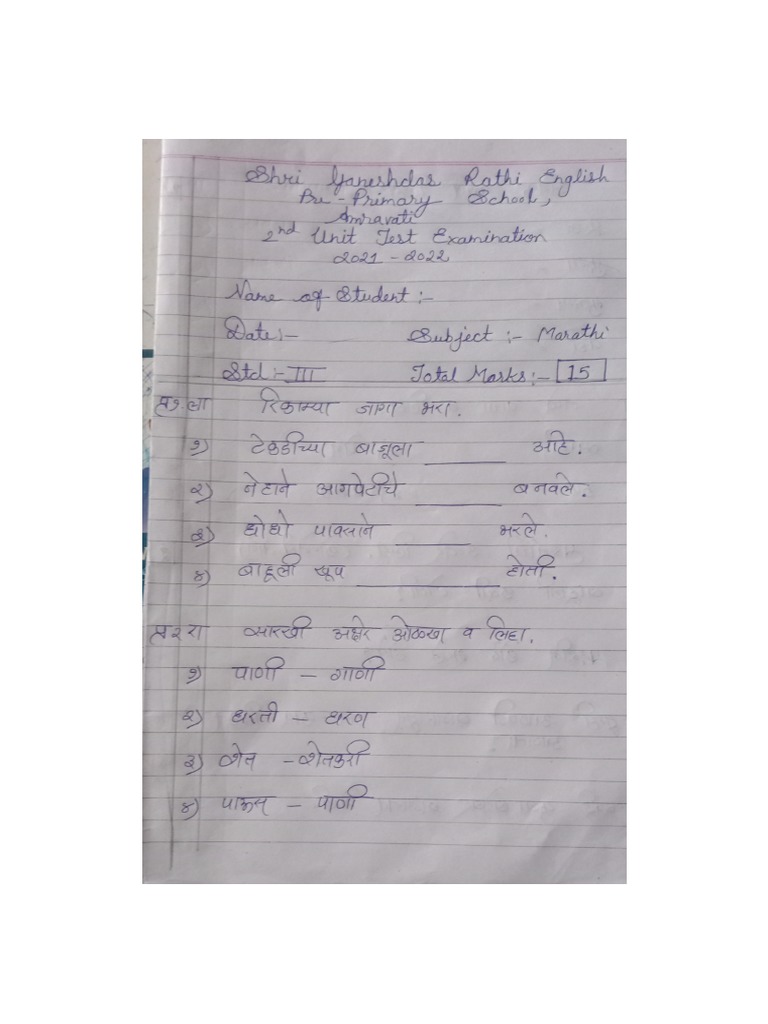 Shri Ganeshdas Rathi English
Pre-Primary School,
Amravati
2nd Unit Test Examination
2021-2022
Name of Student:-
Date:- Subject:- Marathi
Std:- III Total Marks:- 15
प्र१.ला रिकाम्या जागा भरा.
१) टेकडीच्या बाजूला ______ आहे.
२) नेहाने आगपेटीचे ______ बनवले.
३) धोधो पावसाने ______ भरले.
४) बाहूली खूप ______ होती.
प्र२रा सारखी अक्षरे ओळखा व लिहा.
१) पाणी – गाणी
२) धरती – धरण
३) शेत - शेतकरी
४) पाऊस – पाणी